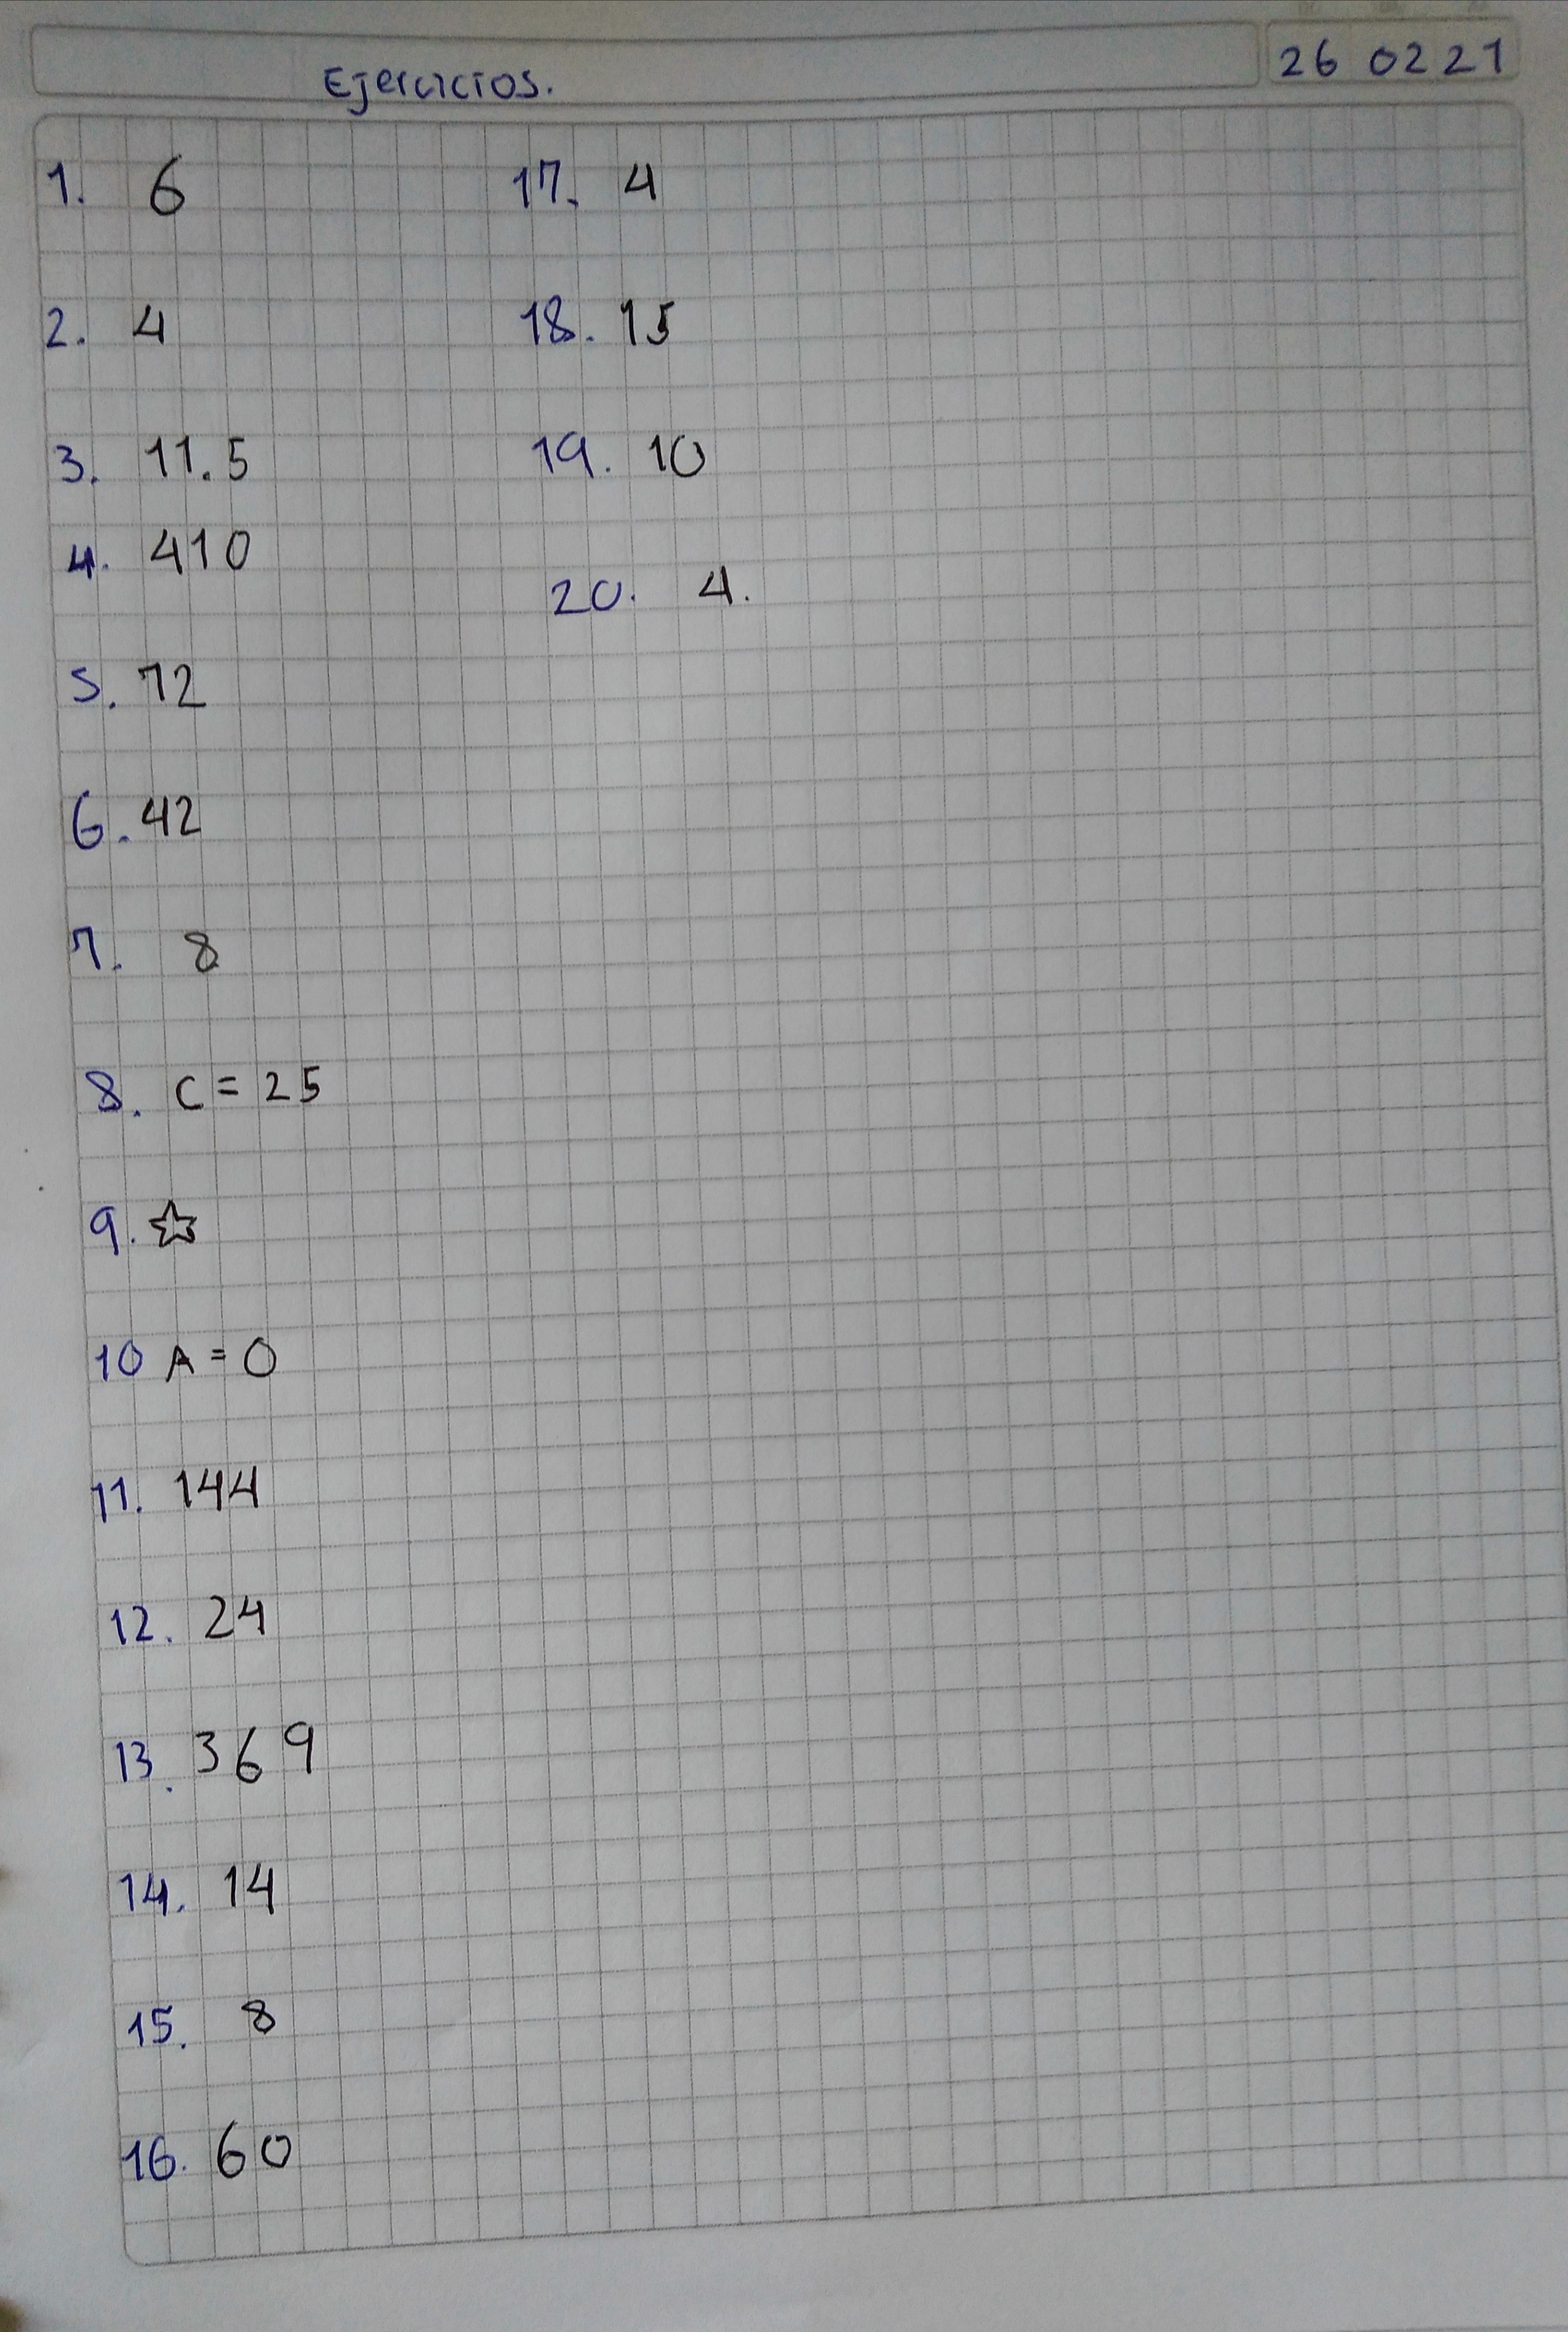 Ejercicios.
26 02 21
1. 6
2. 4
3. 11.5
4. 410
5. 72
6. 42
7. 8
8. C = 25
9. ☆
10 A = 0
11. 144
12. 24
13. 369
14. 14
15. 8
16. 60
17. 4
18. 15
19. 10
20. 4.